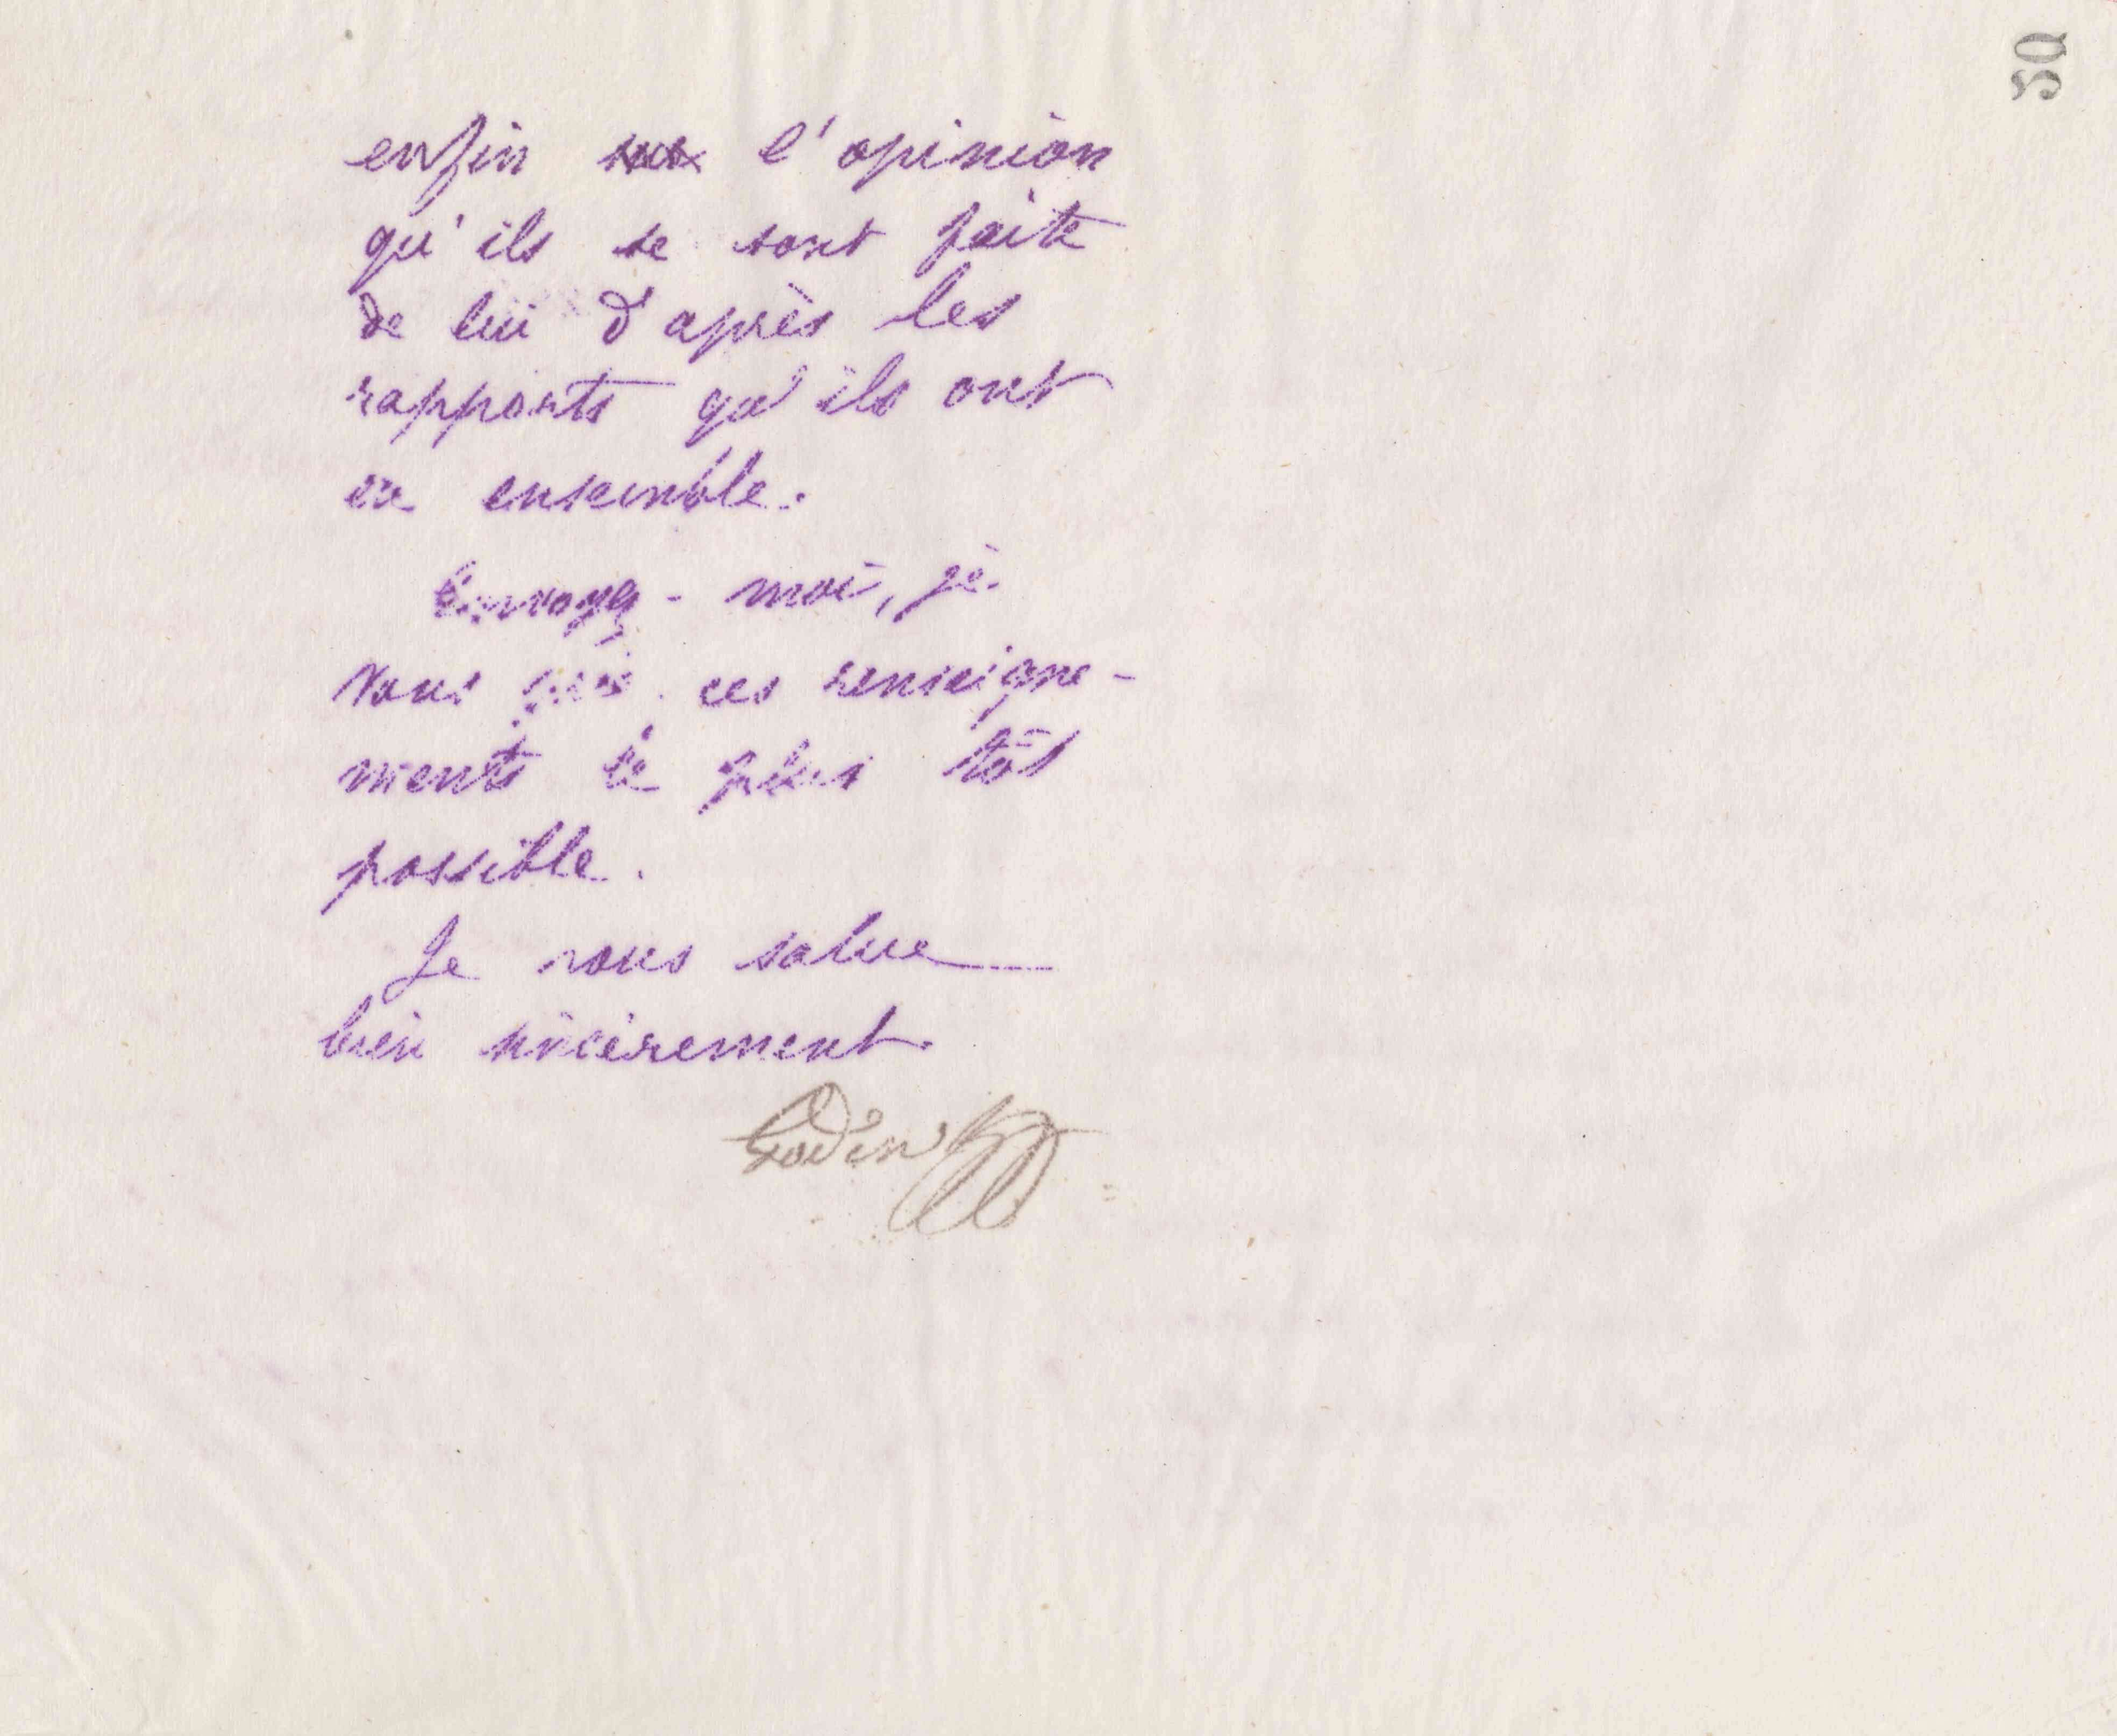 50
enfin l'opinion
qu'ils se sont faite
de lui d'après les
rapports qu'ils ont
eu ensemble.
Envoyez-moi, je
vous prie ces renseigne-
ments le plus tôt
possible.
Je vous salue
bien sincèrement.
Godin